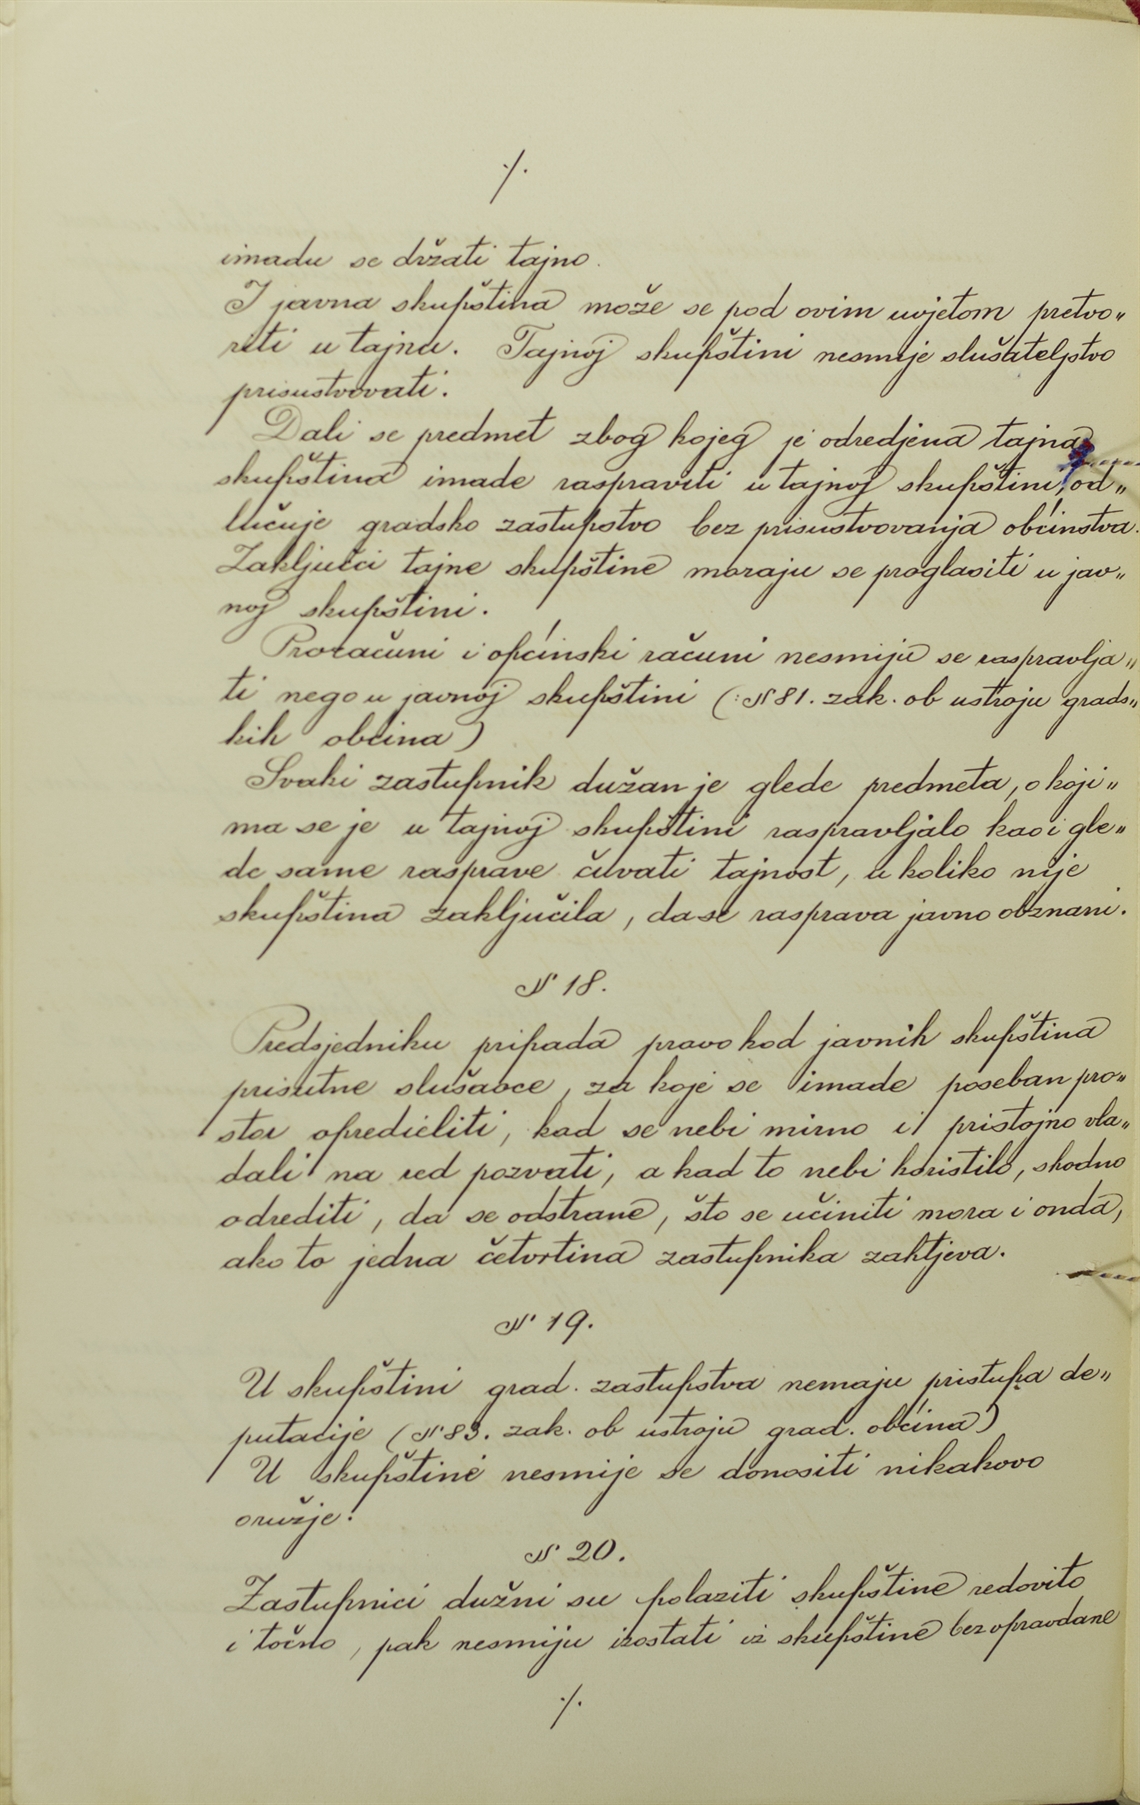 ·/.
imadu se držati tajno.
I javna skupština može se pod ovim uvjetom pretvo„
riti u tajnu. Tajnoj skupštini nesmije slušateljstvo
prisustvovati.
Dali se predmet zbog kojeg je odredjena tajna
skupština imade raspraviti u tajnoj skupštini, od„
lučuje gradsko zastupstvo bez prisustvovanja obćinstva.
Zaključci tajne skupštine moraju se proglasiti u jav„
noj skupštini.
Proračuni i općinski računi nesmiju se raspravlja„
ti nego u javnoj skupštini (: § 81. zak. ob ustroju grads„
kih obćina)
Svaki zastupnik dužan je glede predmeta, o koji„
ma se je u tajnoj skupštini raspravljalo kao i gle„
de same rasprave čuvati tajnost, u koliko nije
skupština zaključila, da se rasprava javno obznani.
§ 18.
Predsjedniku pripada pravo kod javnih skupština
prisutne slušaoce, za koje se imade poseban pro„
stor opredieliti, kad se nebi mirno i pristojno vla„
dali na red pozvati, a kad to nebi koristilo, shodno
odrediti, da se odstrane, što se učiniti mora i onda,
ako to jedna četvrtina zastupnika zahtjeva.
§ 19.
U skupštini grad. zastupstva nemaju pristupa de„
putacije (§ 83. zak. ob ustroju grad. obćina)
U skupštine nesmije se donositi nikakovo
oružje.
§ 20.
Zastupnici dužni su polaziti skupštine redovito
i točno, pak nesmiju izostati iz skupštine bez opravdane
·/.